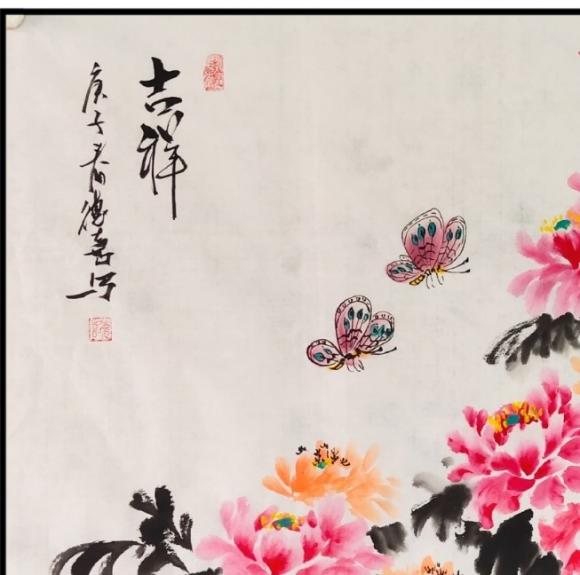 吉祥
庚子春德喜写